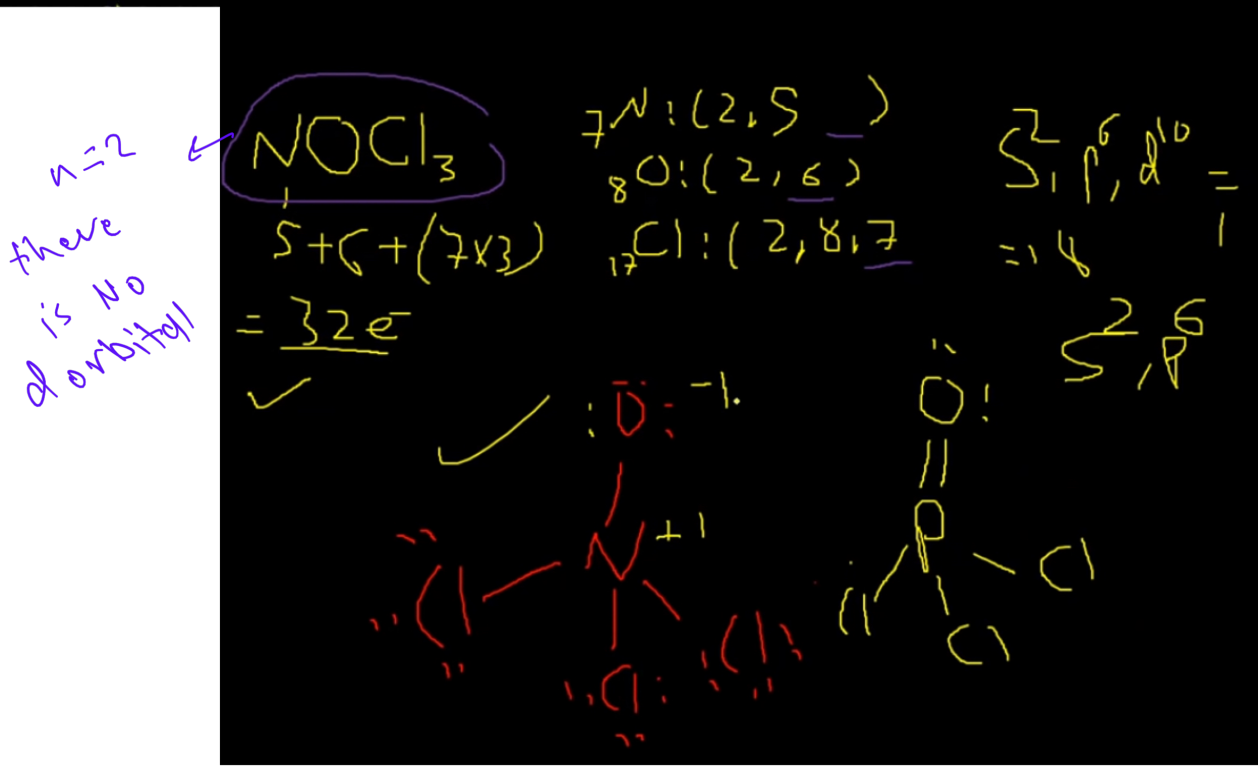 n=2
there
is NO
d orbital
NOCl3
5+6+(7x3)
= 32e-
7N:(2,5 )
8O:(2,6)
17Cl:(2,8,7
S2, p6, d10 =
=18
1
S2, P6
:O: -1.
N +1
Cl
Cl:
Cl:
O:
P
Cl
Cl
Cl